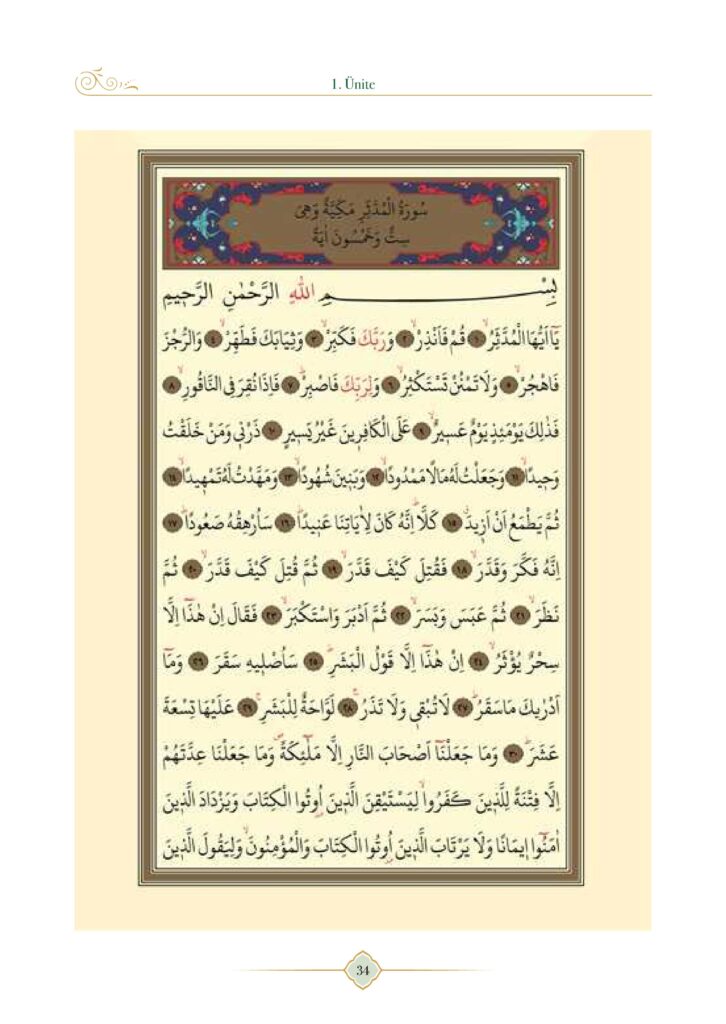 1. Ünite
سُورَةُ الْمُدَّثِّرِ مَكِّيَّةٌ وَهِىَ
سِتٌّ وَخَمْسُونَ اٰيَةً
بِسْمِ اللّٰهِ الرَّحْمٰنِ الرَّح۪يمِ
يَٓا اَيُّهَا الْمُدَّثِّرُۙ ﴿١﴾ قُمْ فَاَنْذِرْۙ ﴿٢﴾ وَرَبَّكَ فَكَبِّرْۙ ﴿٣﴾ وَثِيَابَكَ فَطَهِّرْۙ ﴿٤﴾ وَالرُّجْزَ
فَاهْجُرْۙ ﴿٥﴾ وَلَا تَمْنُنْ تَسْتَكْثِرُۙ ﴿٦﴾ وَلِرَبِّكَ فَاصْبِرْۜ ﴿٧﴾ فَاِذَا نُقِرَ فِي النَّاقُورِۙ ﴿٨﴾
فَذٰلِكَ يَوْمَئِذٍ يَوْمٌ عَس۪يرٌۙ ﴿٩﴾ عَلَى الْكَافِر۪ينَ غَيْرُ يَس۪يرٍ ﴿١٠﴾ ذَرْن۪ي وَمَنْ خَلَقْتُ
وَح۪يدًاۙ ﴿١١﴾ وَجَعَلْتُ لَهُ مَالًا مَمْدُودًاۙ ﴿١٢﴾ وَبَن۪ينَ شُهُودًاۙ ﴿١٣﴾ وَمَهَّدْتُ لَهُ تَمْه۪يدًاۙ ﴿١٤﴾
ثُمَّ يَطْمَعُ اَنْ اَز۪يدَۗ ﴿١٥﴾ كَلَّاۜ اِنَّهُ كَانَ لِاٰيَاتِنَا عَن۪يدًاۜ ﴿١٦﴾ سَاُرْهِقُهُ صَعُودًاۜ ﴿١٧﴾
اِنَّهُ فَكَّرَ وَقَدَّرَۙ ﴿١٨﴾ فَقُتِلَ كَيْفَ قَدَّرَۙ ﴿١٩﴾ ثُمَّ قُتِلَ كَيْفَ قَدَّرَۙ ﴿٢٠﴾ ثُمَّ
نَظَرَۙ ﴿٢١﴾ ثُمَّ عَبَسَ وَبَسَرَۙ ﴿٢٢﴾ ثُمَّ اَدْبَرَ وَاسْتَكْبَرَۙ ﴿٢٣﴾ فَقَالَ اِنْ هٰذَٓا اِلَّا
سِحْرٌ يُؤْثَرُۙ ﴿٢٤﴾ اِنْ هٰذَٓا اِلَّا قَوْلُ الْبَشَرِۜ ﴿٢٥﴾ سَاُصْل۪يهِ سَقَرَ ﴿٢٦﴾ وَمَٓا
اَدْرٰيكَ مَا سَقَرُۜ ﴿٢٧﴾ لَا تُبْق۪ي وَلَا تَذَرُۚ ﴿٢٨﴾ لَوَّاحَةٌ لِلْبَشَرِۚ ﴿٢٩﴾ عَلَيْهَا تِسْعَةَ
عَشَرَۜ ﴿٣٠﴾ وَمَا جَعَلْنَٓا اَصْحَابَ النَّارِ اِلَّا مَلٰٓئِكَةًۖ وَمَا جَعَلْنَا عِدَّتَهُمْ
اِلَّا فِتْنَةً لِلَّذ۪ينَ كَفَرُواۙ لِيَسْتَيْقِنَ الَّذ۪ينَ اُو۫تُوا الْكِتَابَ وَيَزْدَادَ الَّذ۪ينَ
اٰمَنُٓوا ا۪يمَانًا وَلَا يَرْتَابَ الَّذ۪ينَ اُو۫تُوا الْكِتَابَ وَالْمُؤْمِنُونَۙ وَلِيَقُولَ الَّذ۪ينَ
34